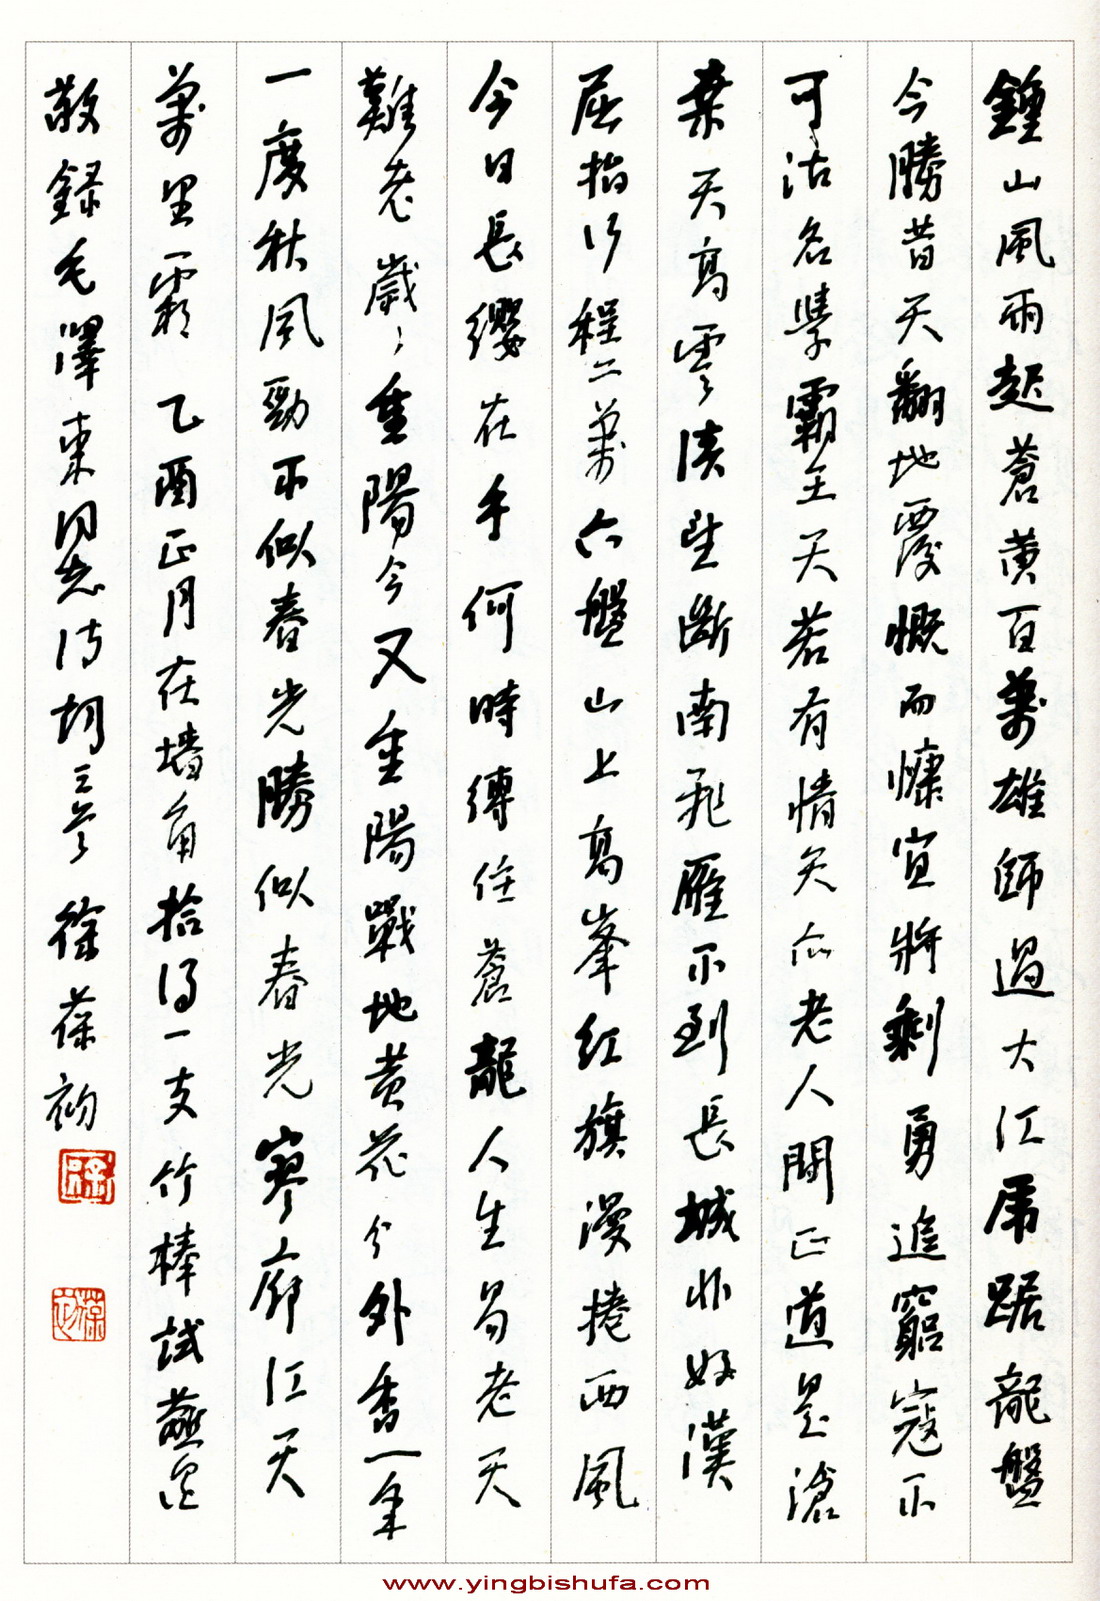 鍾山風雨起蒼黃百萬雄師過大江虎踞龍盤
今勝昔天翻地覆慨而慷宜將剩勇追窮寇不
可沽名學霸王天若有情天亦老人間正道是滄
桑天高雲淡望斷南飛雁不到長城非好漢
屈指行程二萬六盤山上高峯紅旗漫捲西風
今日長纓在手何時縛住蒼龍人生易老天
難老歲歲重陽今又重陽戰地黃花分外香一年
一度秋風勁不似春光勝似春光寥廓江天
萬里霜乙酉正月在墻角拾得一支竹棒試蘸墨
敬錄毛澤東同志詩詞三首徐葆初
www.yingbishufa.com